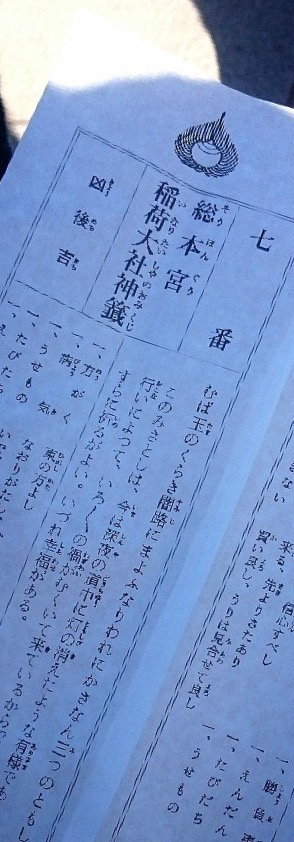 七番
総本宮
稲荷大社神籤
凶後吉
むば玉のくらき闇路にまよふなりわれにかさなん三つのともし
このみさとしは、今は深夜の道中に灯の消えたような有様でも
行いによって、いろ〳〵の福がむくいて来ているから
すらに祈るがよい。いづれ幸福がある。
一、方がく 東の方よし
一、病気 なおりがたし
一、うせもの
一、たびだち
来る、先よりさたあり
買い良し、うりは見合せて良し
一、勝負事
一、えんだん
一、たびだち
一、うせもの